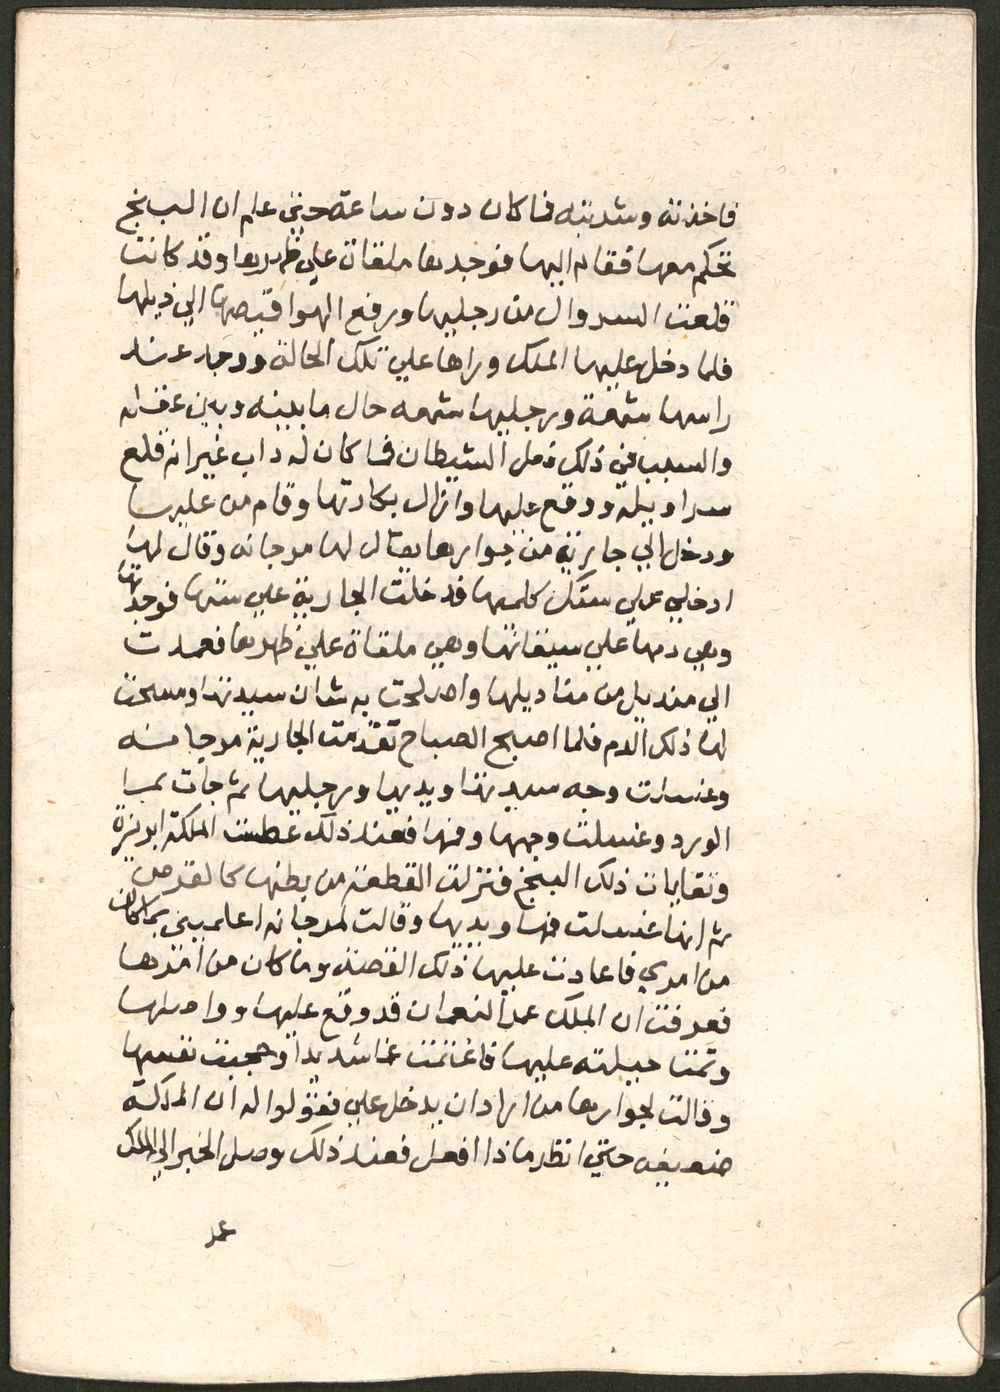 فاخذته وشربته فما كان دون ساعة حتي علم ان البنج
تحكم معها فقام اليها فوجدها ملقاة علي ظهرها وقد كانت
قلعت السروال من رجليها ورفع الهوا قميصها الي ذيلها
فلما دخل عليها الملك وراها علي تلك الحالة ووجد عند
راسها شمعة وبرجليها شمعه حال ما بينه وبين عقله
والسبب في ذلك الشيطان فما كان له داب غير انه قلع
سراويله ووقع عليها وازال بكارتها وقام من عليها
ودخل الي جارية من جوارها يقال لها مرجانه وقال لها
ادخلي علي ستك كلميها فدخلت الجارية علي ستها فوجدتها
وهي دمها علي سيقانها وهي ملقاة علي ظهرها فعمدت
الي منديل من مناديلها واصلحت به شان سيدتها ومسحت
لها ذلك الدم فلما اصبح الصباح تقدمت الجارية مرجانه
وغسلت وجه سيدتها ويديها ورجليها ثم جات بما
الورد وغسلت وجهها وفمها فعند ذلك عطست الملكة ابريزة
وتقايات ذلك البنج فنزلت القطعة من بطنها كالقرص
ثم انها غسلت فمها ويديها وقالت لمرجانه اعلميني بما كان
من امري فاعادت عليها ذلك القصة وما كان من امرها
فعرفت ان الملك عمر النعمان قد وقع عليها وواصلها
وتمت حيلته عليها فاغتمت غما شديدا وحجبت نفسها
وقالت لجوارها من اراد ان يدخل علي فقولوا له ان الملكة
ضعيفه حتي انظر ماذا افعل فعند ذلك وصل الخبر الي الملك
عمر